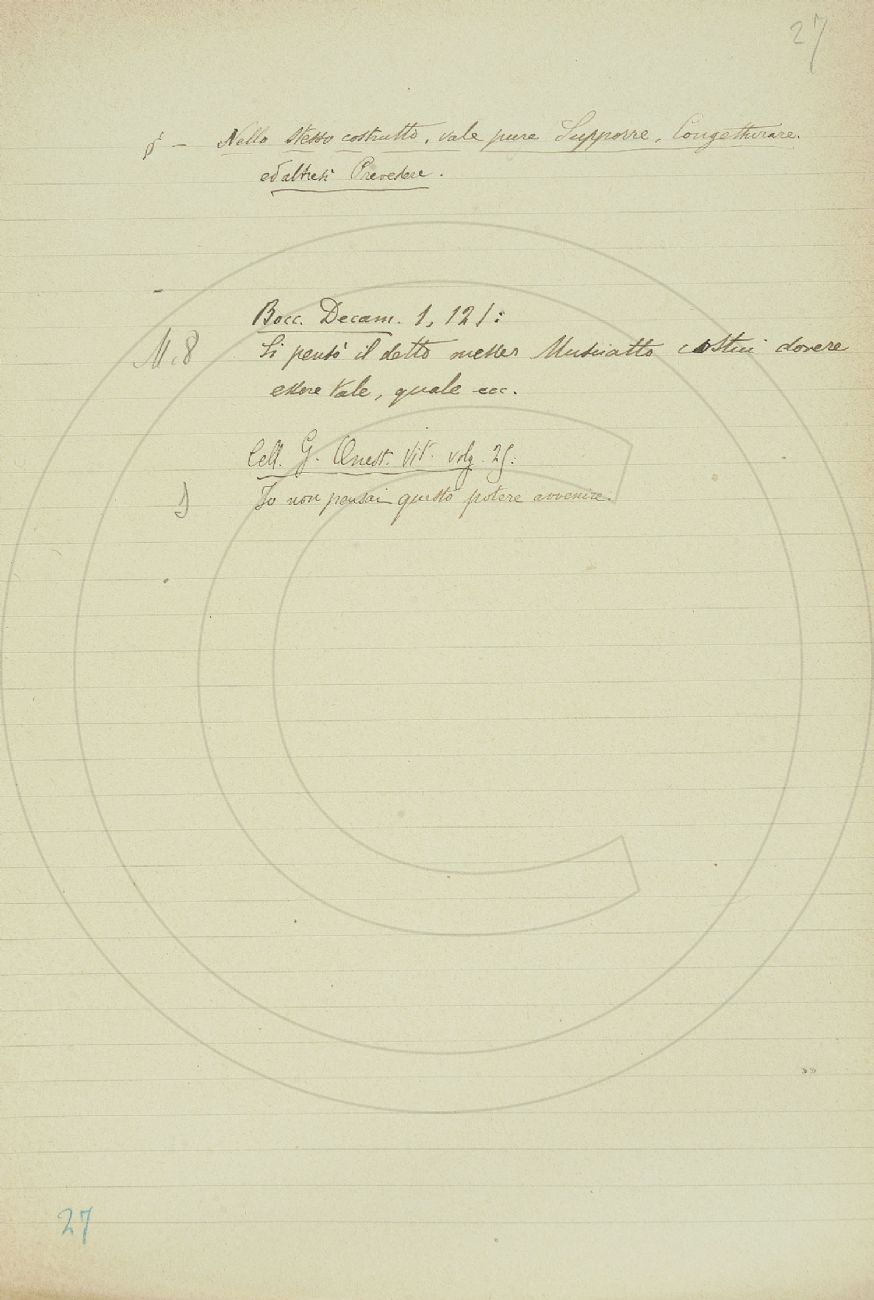 27
§ — Nello stesso costrutto, vale pure Supporre, Congetturare,
ed altresì Prevedere.
Bocc. Decam. 1, 121:
M. 8 Si pensò il detto messer Musciatto costui dovere
essere tale, quale ecc.
Cell. G. Onest. Vit. volg. 25:
Io non pensai questo potere avvenire.
27